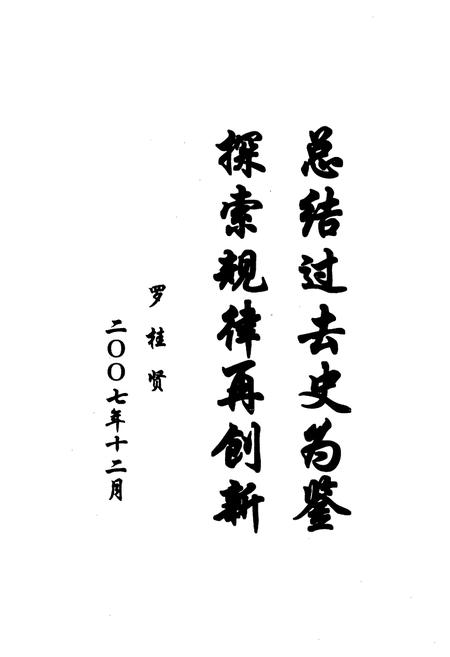 总结过去史为鉴
探索规律再创新
罗桂贤
二〇〇七年十二月